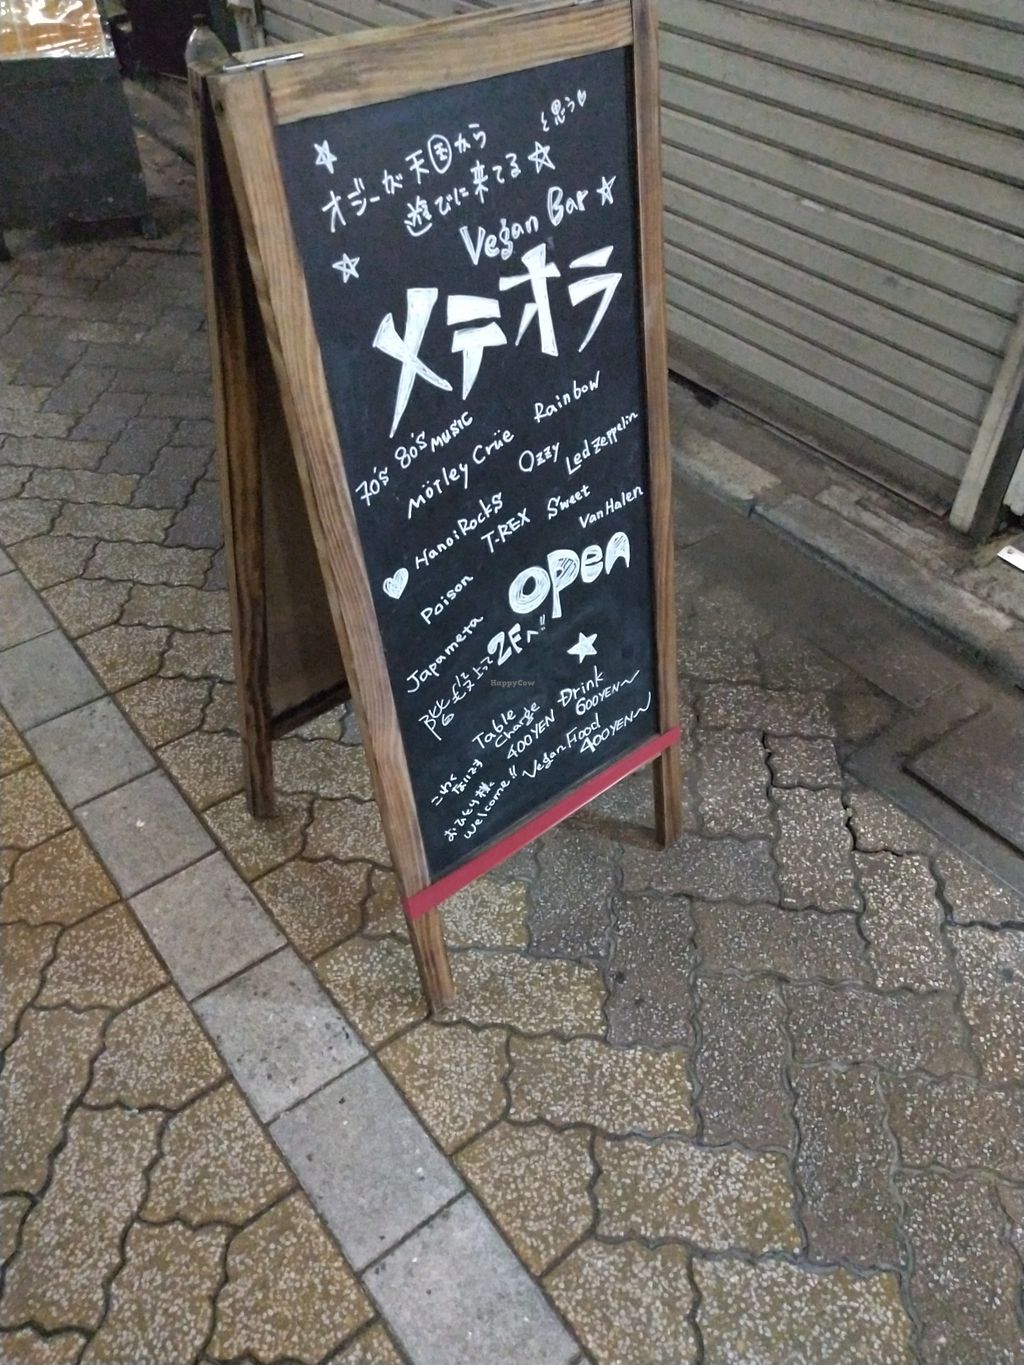 オジーが天国から
遊びに来てる☆
と思う♡
Vegan Bar ☆
メテオラ
70's 80's MUSIC
Rainbow
MÖTLEY CRÜE
Ozzy
Led Zeppelin
Hanoi Rocks
T-REX
Sweet
Van Halen
Poison
open
Japameta
2Fへ!!
上って
HappyCow
Table Charge 400YEN
Drink 600YEN〜
Vegan Food 400YEN〜
こわくないです
おひとり様
Welcome!!